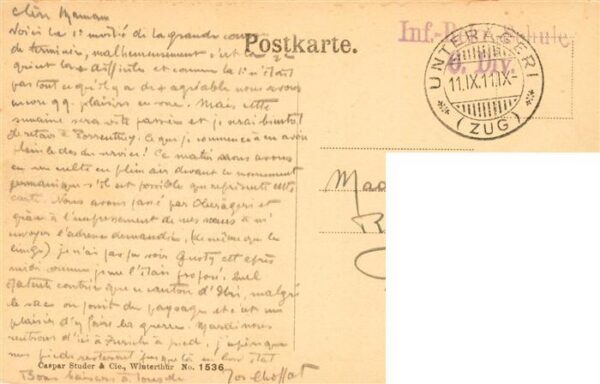 chère Maman
Voici la 1e moitié de la grande course
de terminée, malheureusement c'est la 2e
qui est la + difficile et comme la 1e était
pas tout ce qu'il y a de + agréable nous avons
encore qq. plaisirs en vue. Mais cette
semaine sera vite passée et je serai bientôt
de retour à Porrentruy. Ce que je commence à en avoir
plein le dos du service! Ce matin nous avons
eu un culte en plein air devant ce monument
que représente cette
carte. Nous avons passé par Oberägeri et
grâce à l'empressement de mes sœurs à m'
envoyer l'adresse demandée, (de même que le
linge) je n'ai pas pu voir Gusty cet après
midi comme je me l'étais proposé. Quel
contrée que ce canton d'Uri, malgré
le sac on jouit du paysage et c'est un
plaisir d'y faire la guerre. Mardi nous
rentrons d'ici à Zurich à pied, j'espère que
mes pieds resteront jusque là en bon état
Bons baisers à tous de Jos Choffat
Postkarte.
Inf.- Schule
6. Div.
UNTERÄGERI
11.IX.11.IX-
(ZUG)
Mad
Caspar Studer & Cie., Winterthur No. 1536